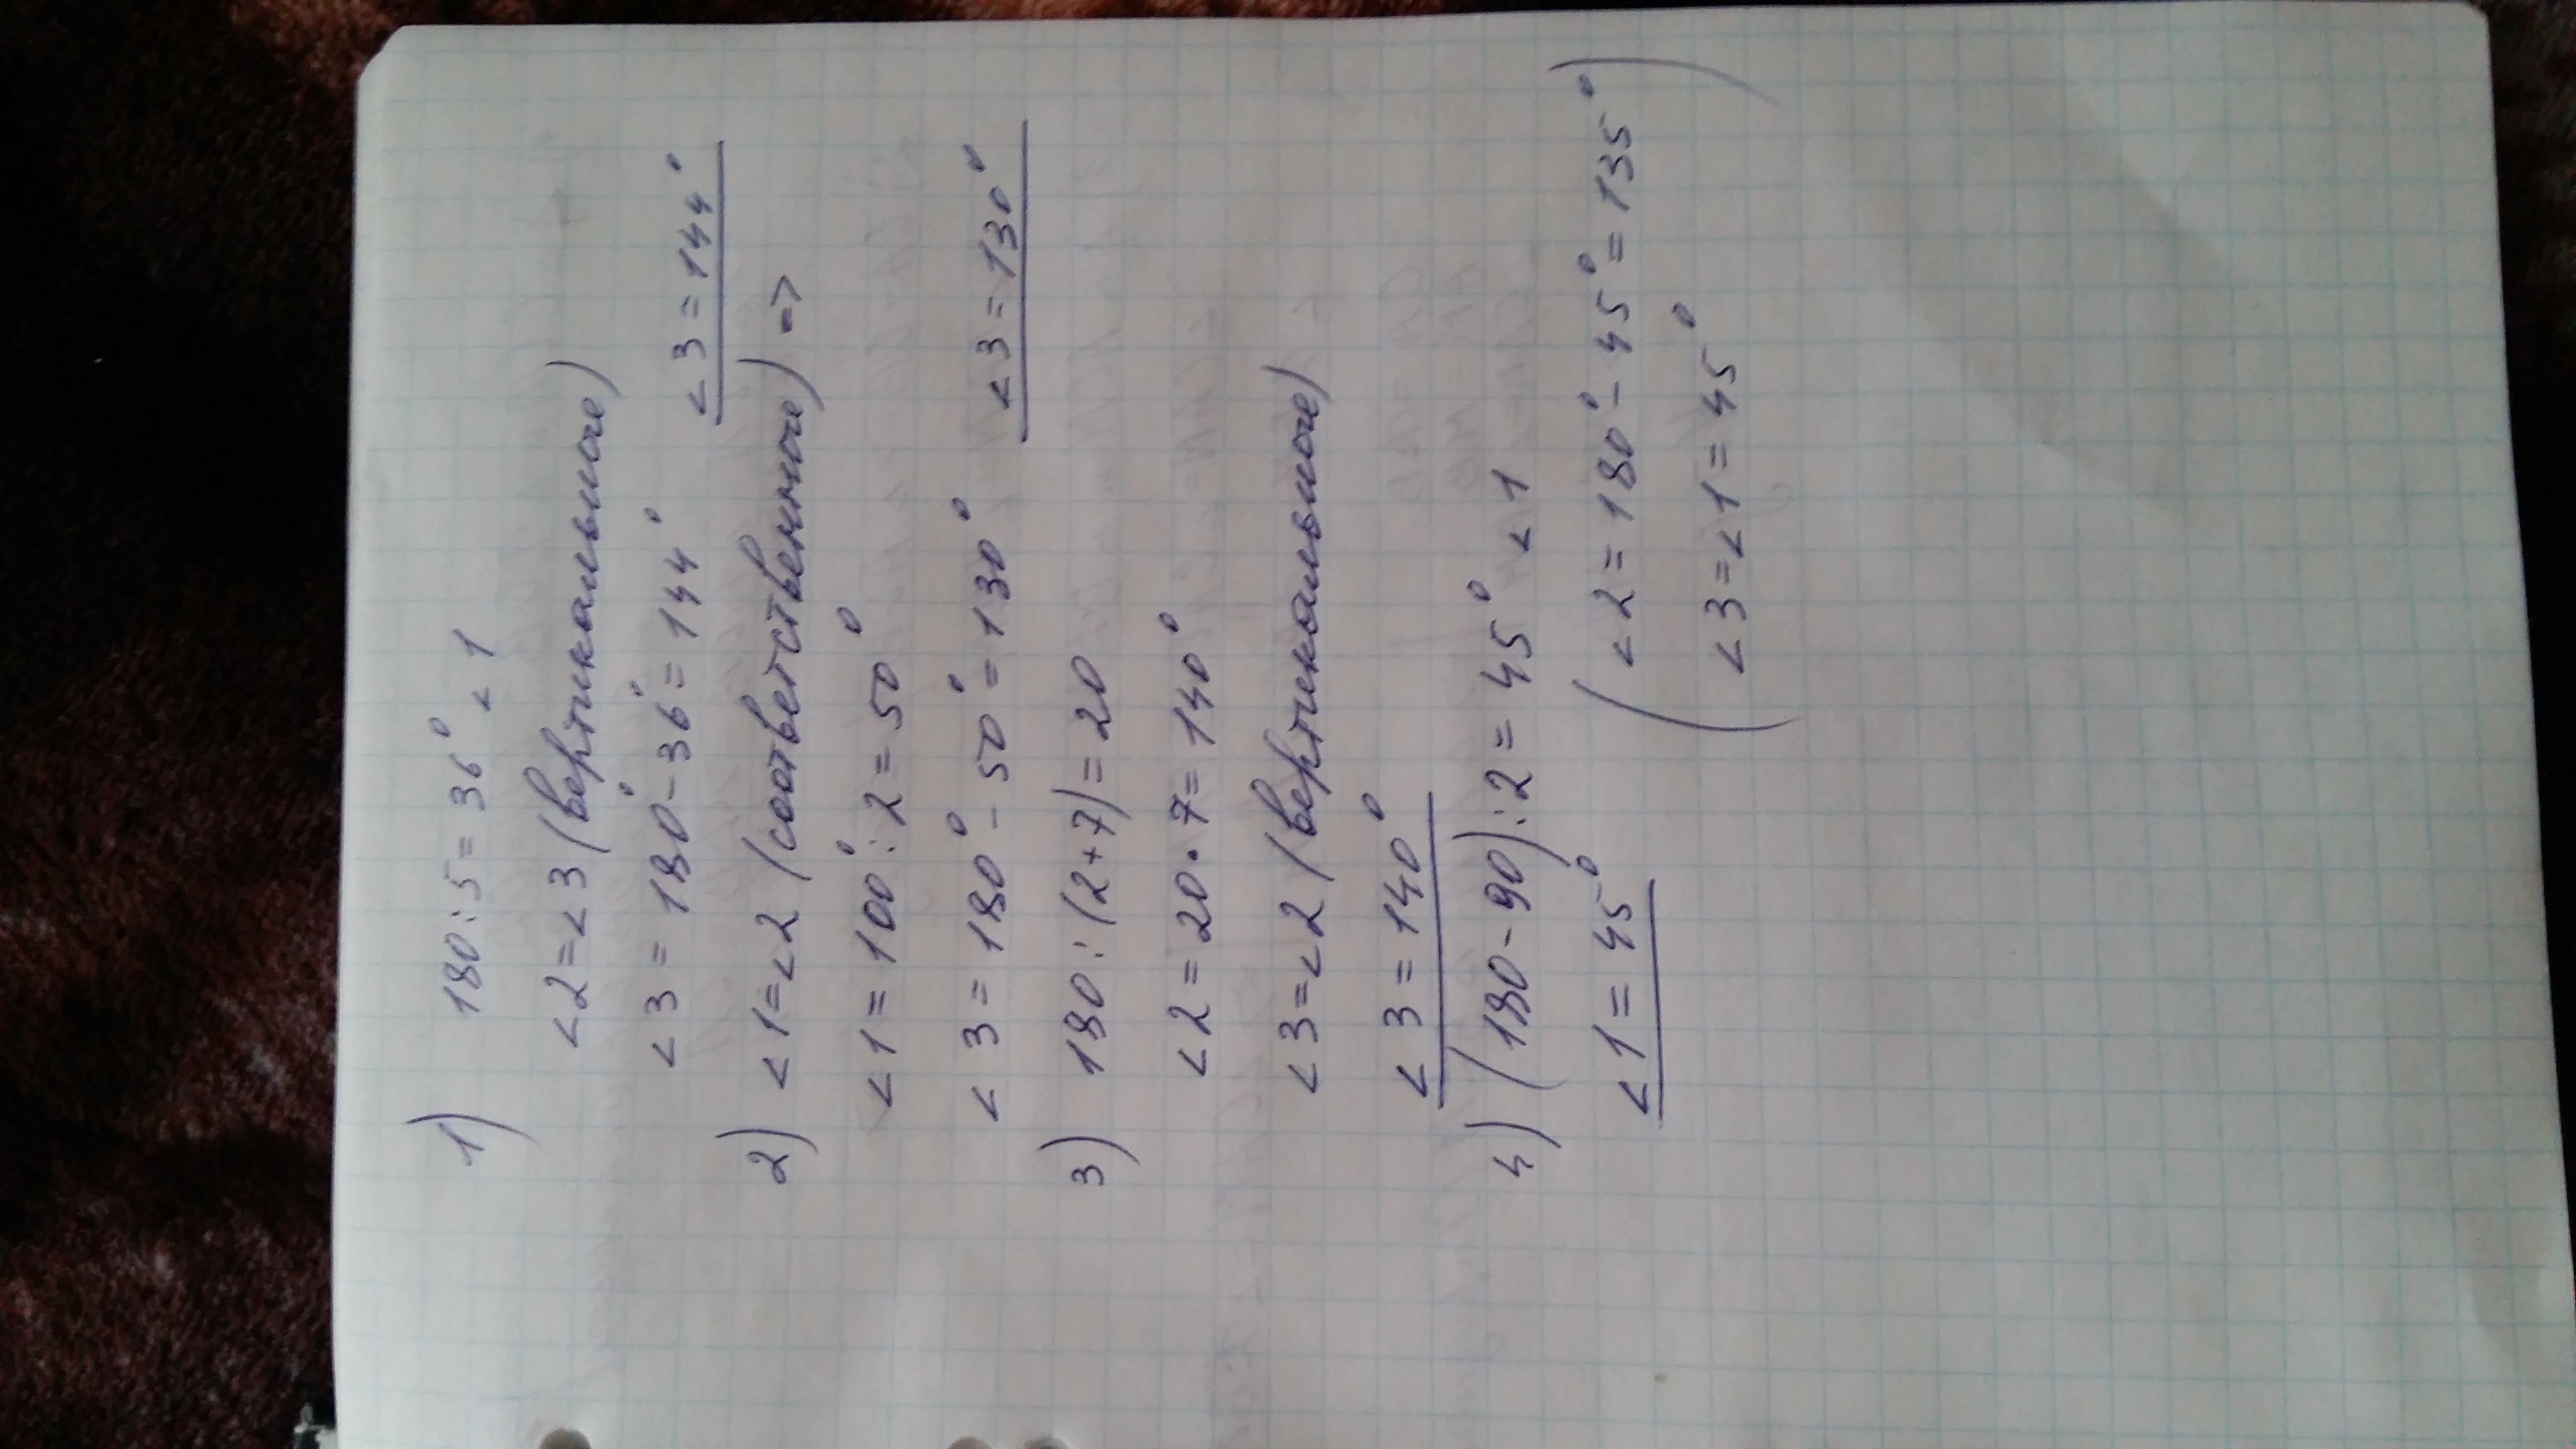 1) 180:5=36° <1
<2=<3 (вертикальные)
<3=180°-36°=144°
<3=144°
2) <1=<2 (соответственные) =>
<1=100°:2=50°
<3=180°-50°=130°
<3=130°
3) 180:(2+7)=20
<2=20·7=140°
<3=<2 (вертикальные)
<3=140°
4) (180-90):2=45° <1
<1=45°
(<2=180°-45°=135°)
<3=<1=45°